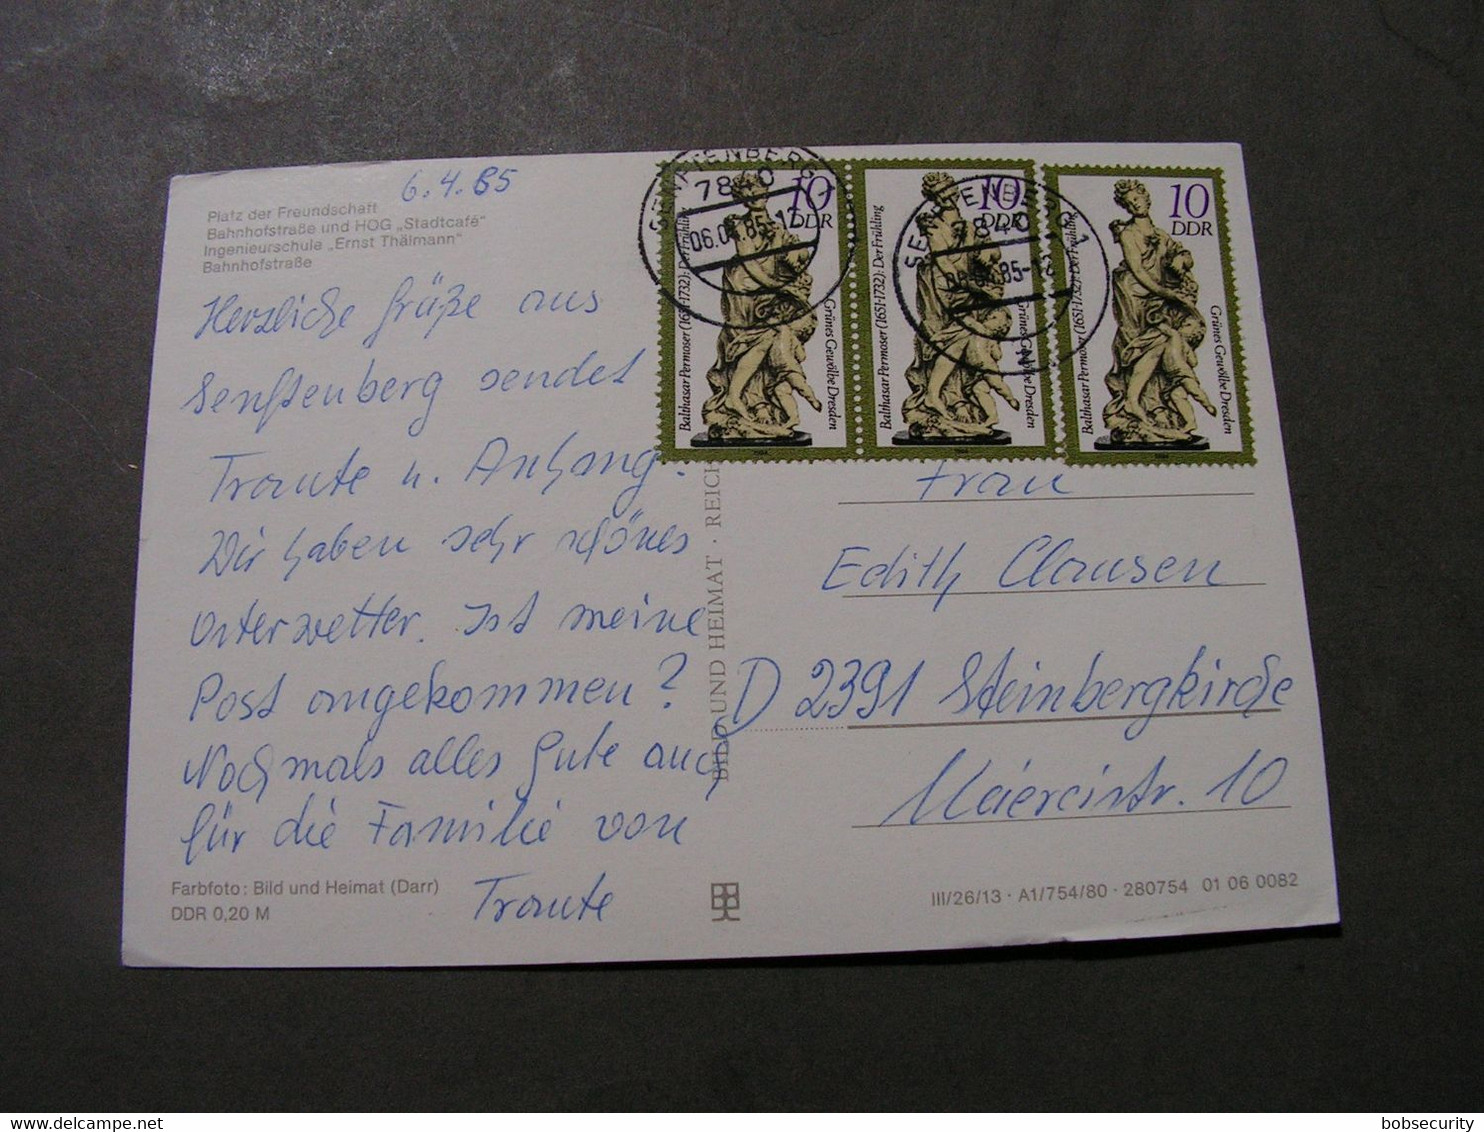 6.4.85
Platz der Freundschaft
Bahnhofstraße und HOG „Stadtcafé"
Ingenieurschule „Ernst Thälmann"
Bahnhofstraße
Herzliche Grüße aus
Senftenberg sendet
Traute u. Anhang.
Wir haben sehr schönes
Osterwetter. Ist meine
Post angekommen?
Nochmals alles Gute auch
für die Familie von
Traute
Farbfoto: Bild und Heimat (Darr)
DDR 0,20 M
BILD UND HEIMAT · REICH
SENFTENBERG 1
7840
06.04.85-17
10
DDR
Balthasar Permoser (1651-1732): Der Frühling
Grünes Gewölbe Dresden
1984
SENFTENBERG 1
7840
06.04.85-17
10
DDR
Balthasar Permoser (1651-1732): Der Frühling
Grünes Gewölbe Dresden
1984
10
DDR
Balthasar Permoser (1651-1732): Der Frühling
Grünes Gewölbe Dresden
1984
Frau
Edith Clausen
D 2391 Steinbergkirche
Meiereistr. 10
III/26/13 · A1/754/80 · 280754 01 06 0082
bobsecurity